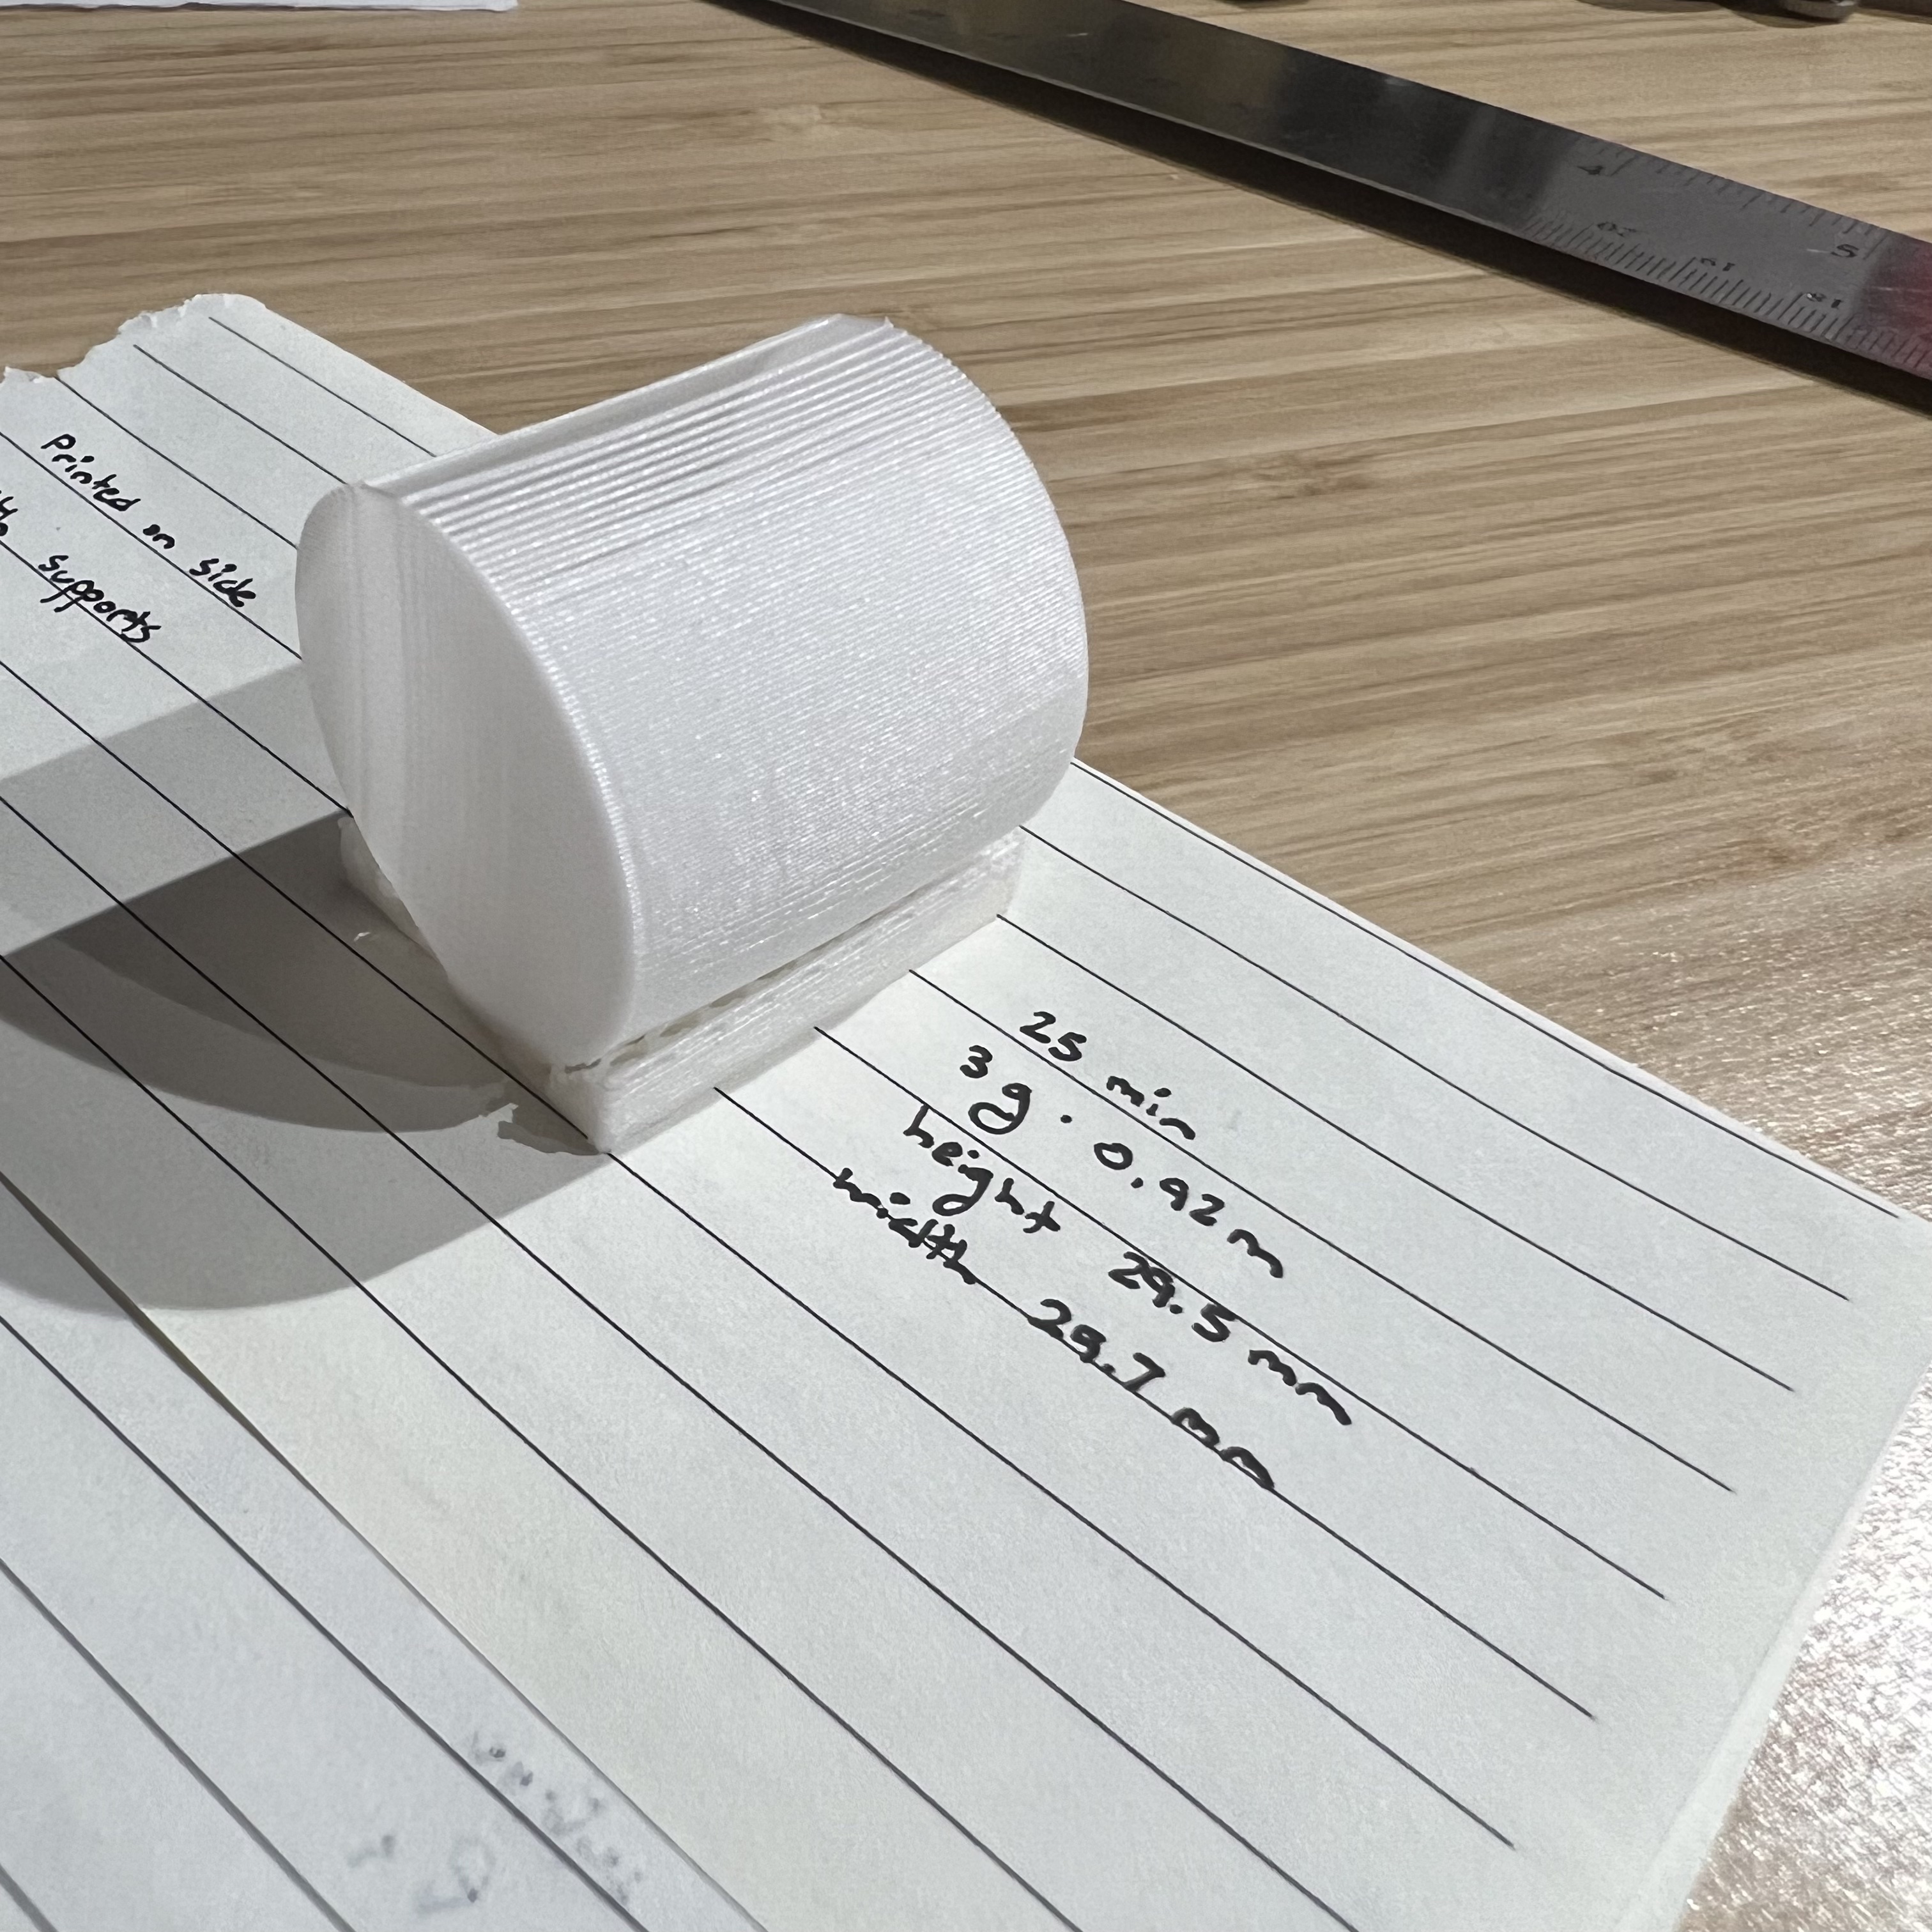 Printed on side
supports
25 min
3g. 0.92 m
height 29.5 mm
width 29.7 mm
4
5
20
19
18